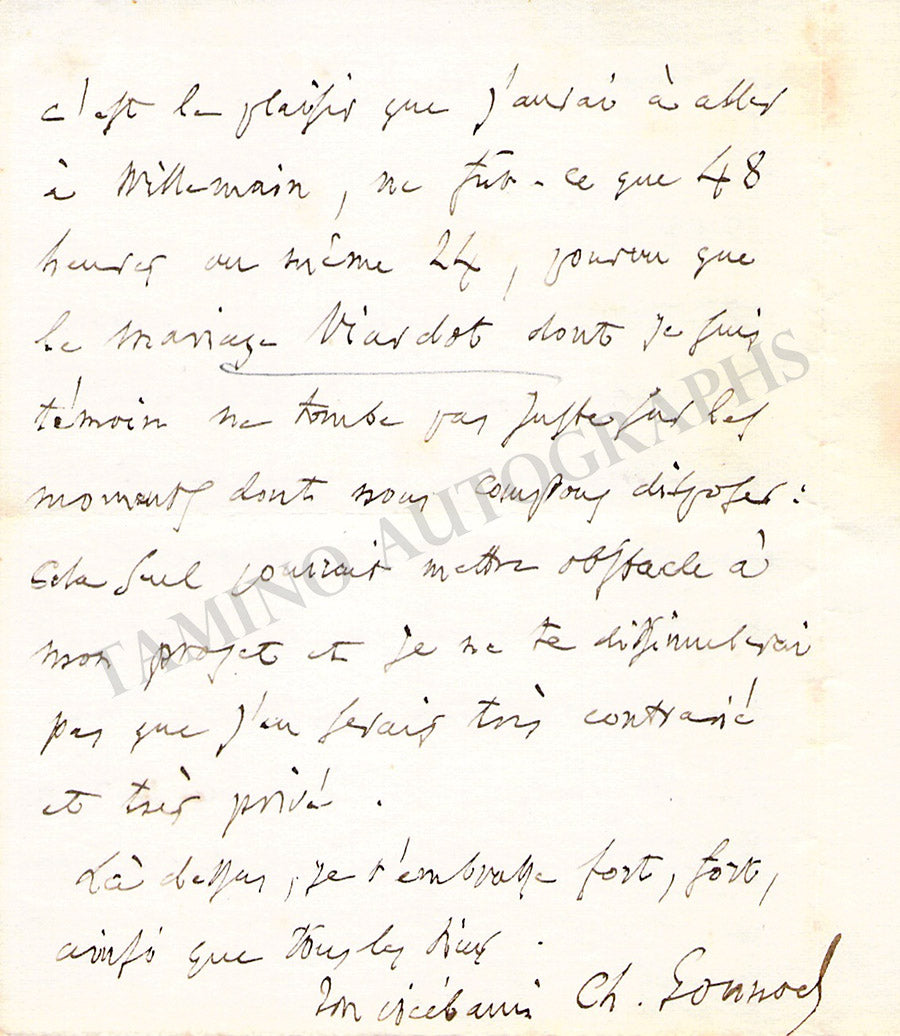 c'est le plaisir que j'aurai à aller
à Willemain, ne fût-ce que 48
heures ou même 24, pourvu que
le mariage Viardot dont je suis
témoin ne tombe pas juste sur les
moments dont nous comptons disposer:
cela seul pourrait mettre obstacle à
mon projet et je ne te dissimulerai
pas que j'en serais très contrarié
et très privé.
Là dessus, je t'embrasse fort, fort,
ainsi que tous les tiens.
Ton Ch. Gounod
TAMINO AUTOGRAPHS